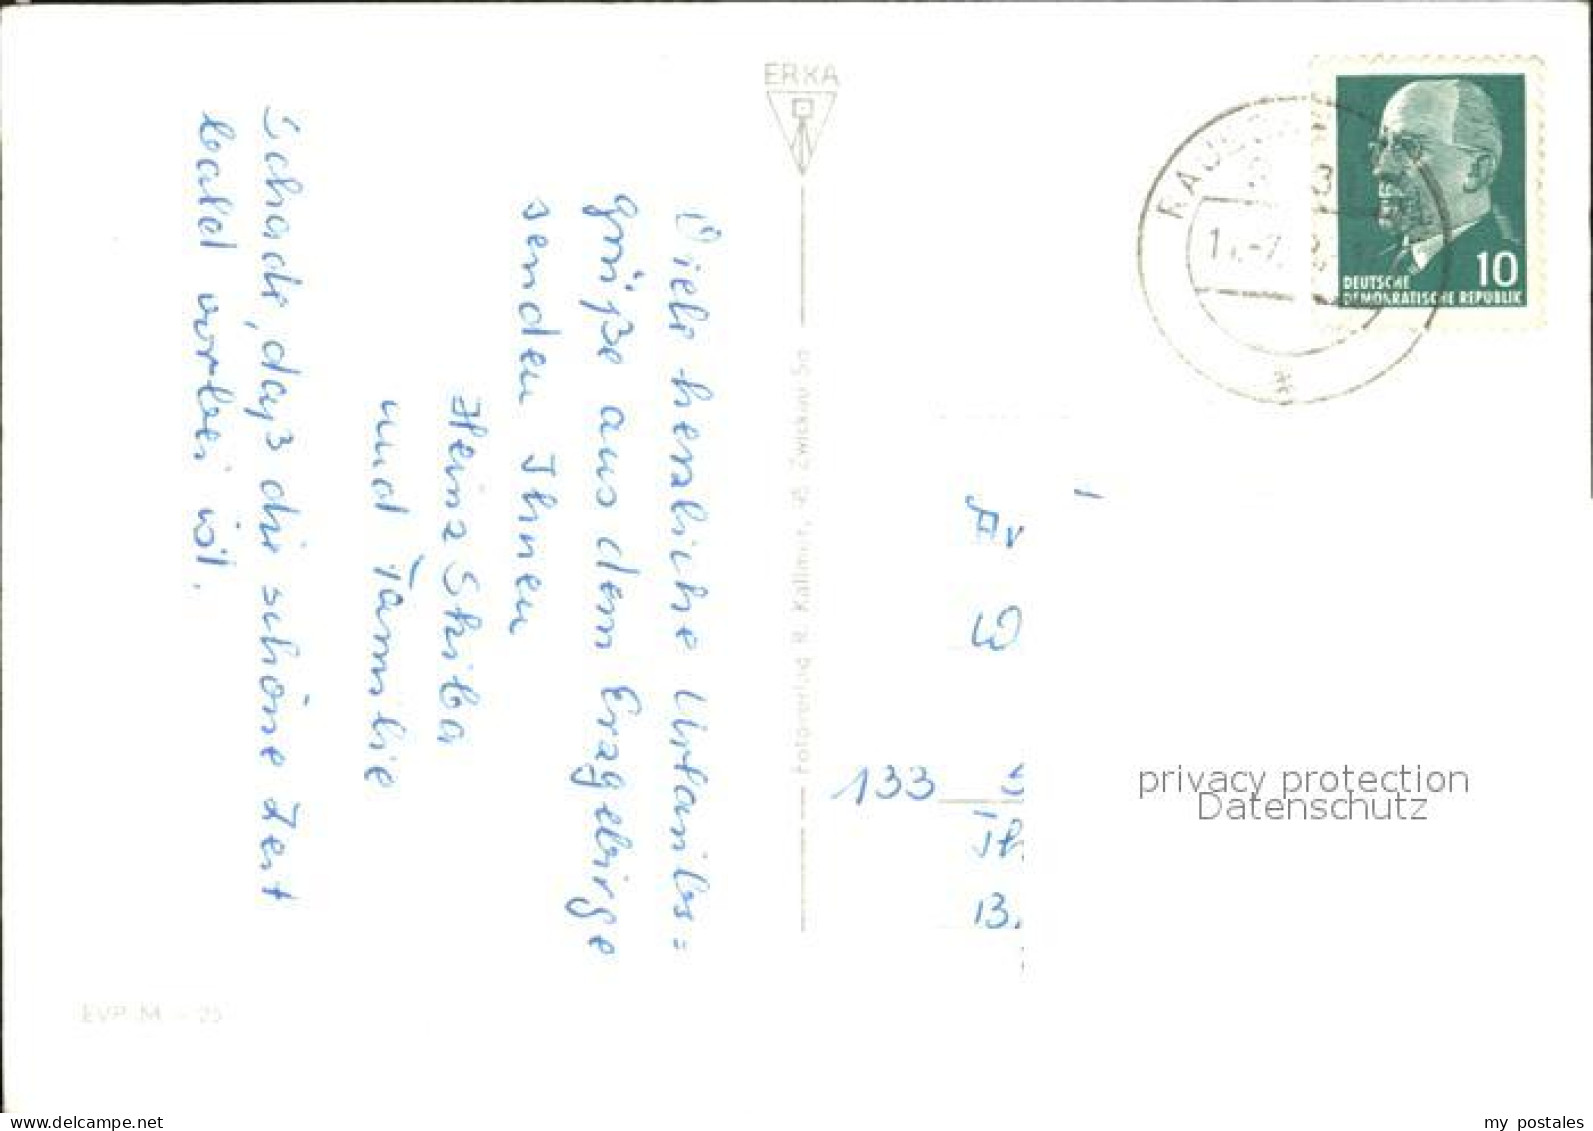 Viele herzliche Urlaubs=
grüße aus dem Erzgebirge
senden Ihnen
Heinz Skriba
und Familie
Schade, daß die schöne Zeit
bald vorbei ist.
EVP M -.25
ERKA
Fotoverlag R. Kallmer, 95 Zwickau Sa
DEUTSCHE
DEMOKRATISCHE REPUBLIK
10
133
privacy protection
Datenschutz
www.delcampe.net
my postales